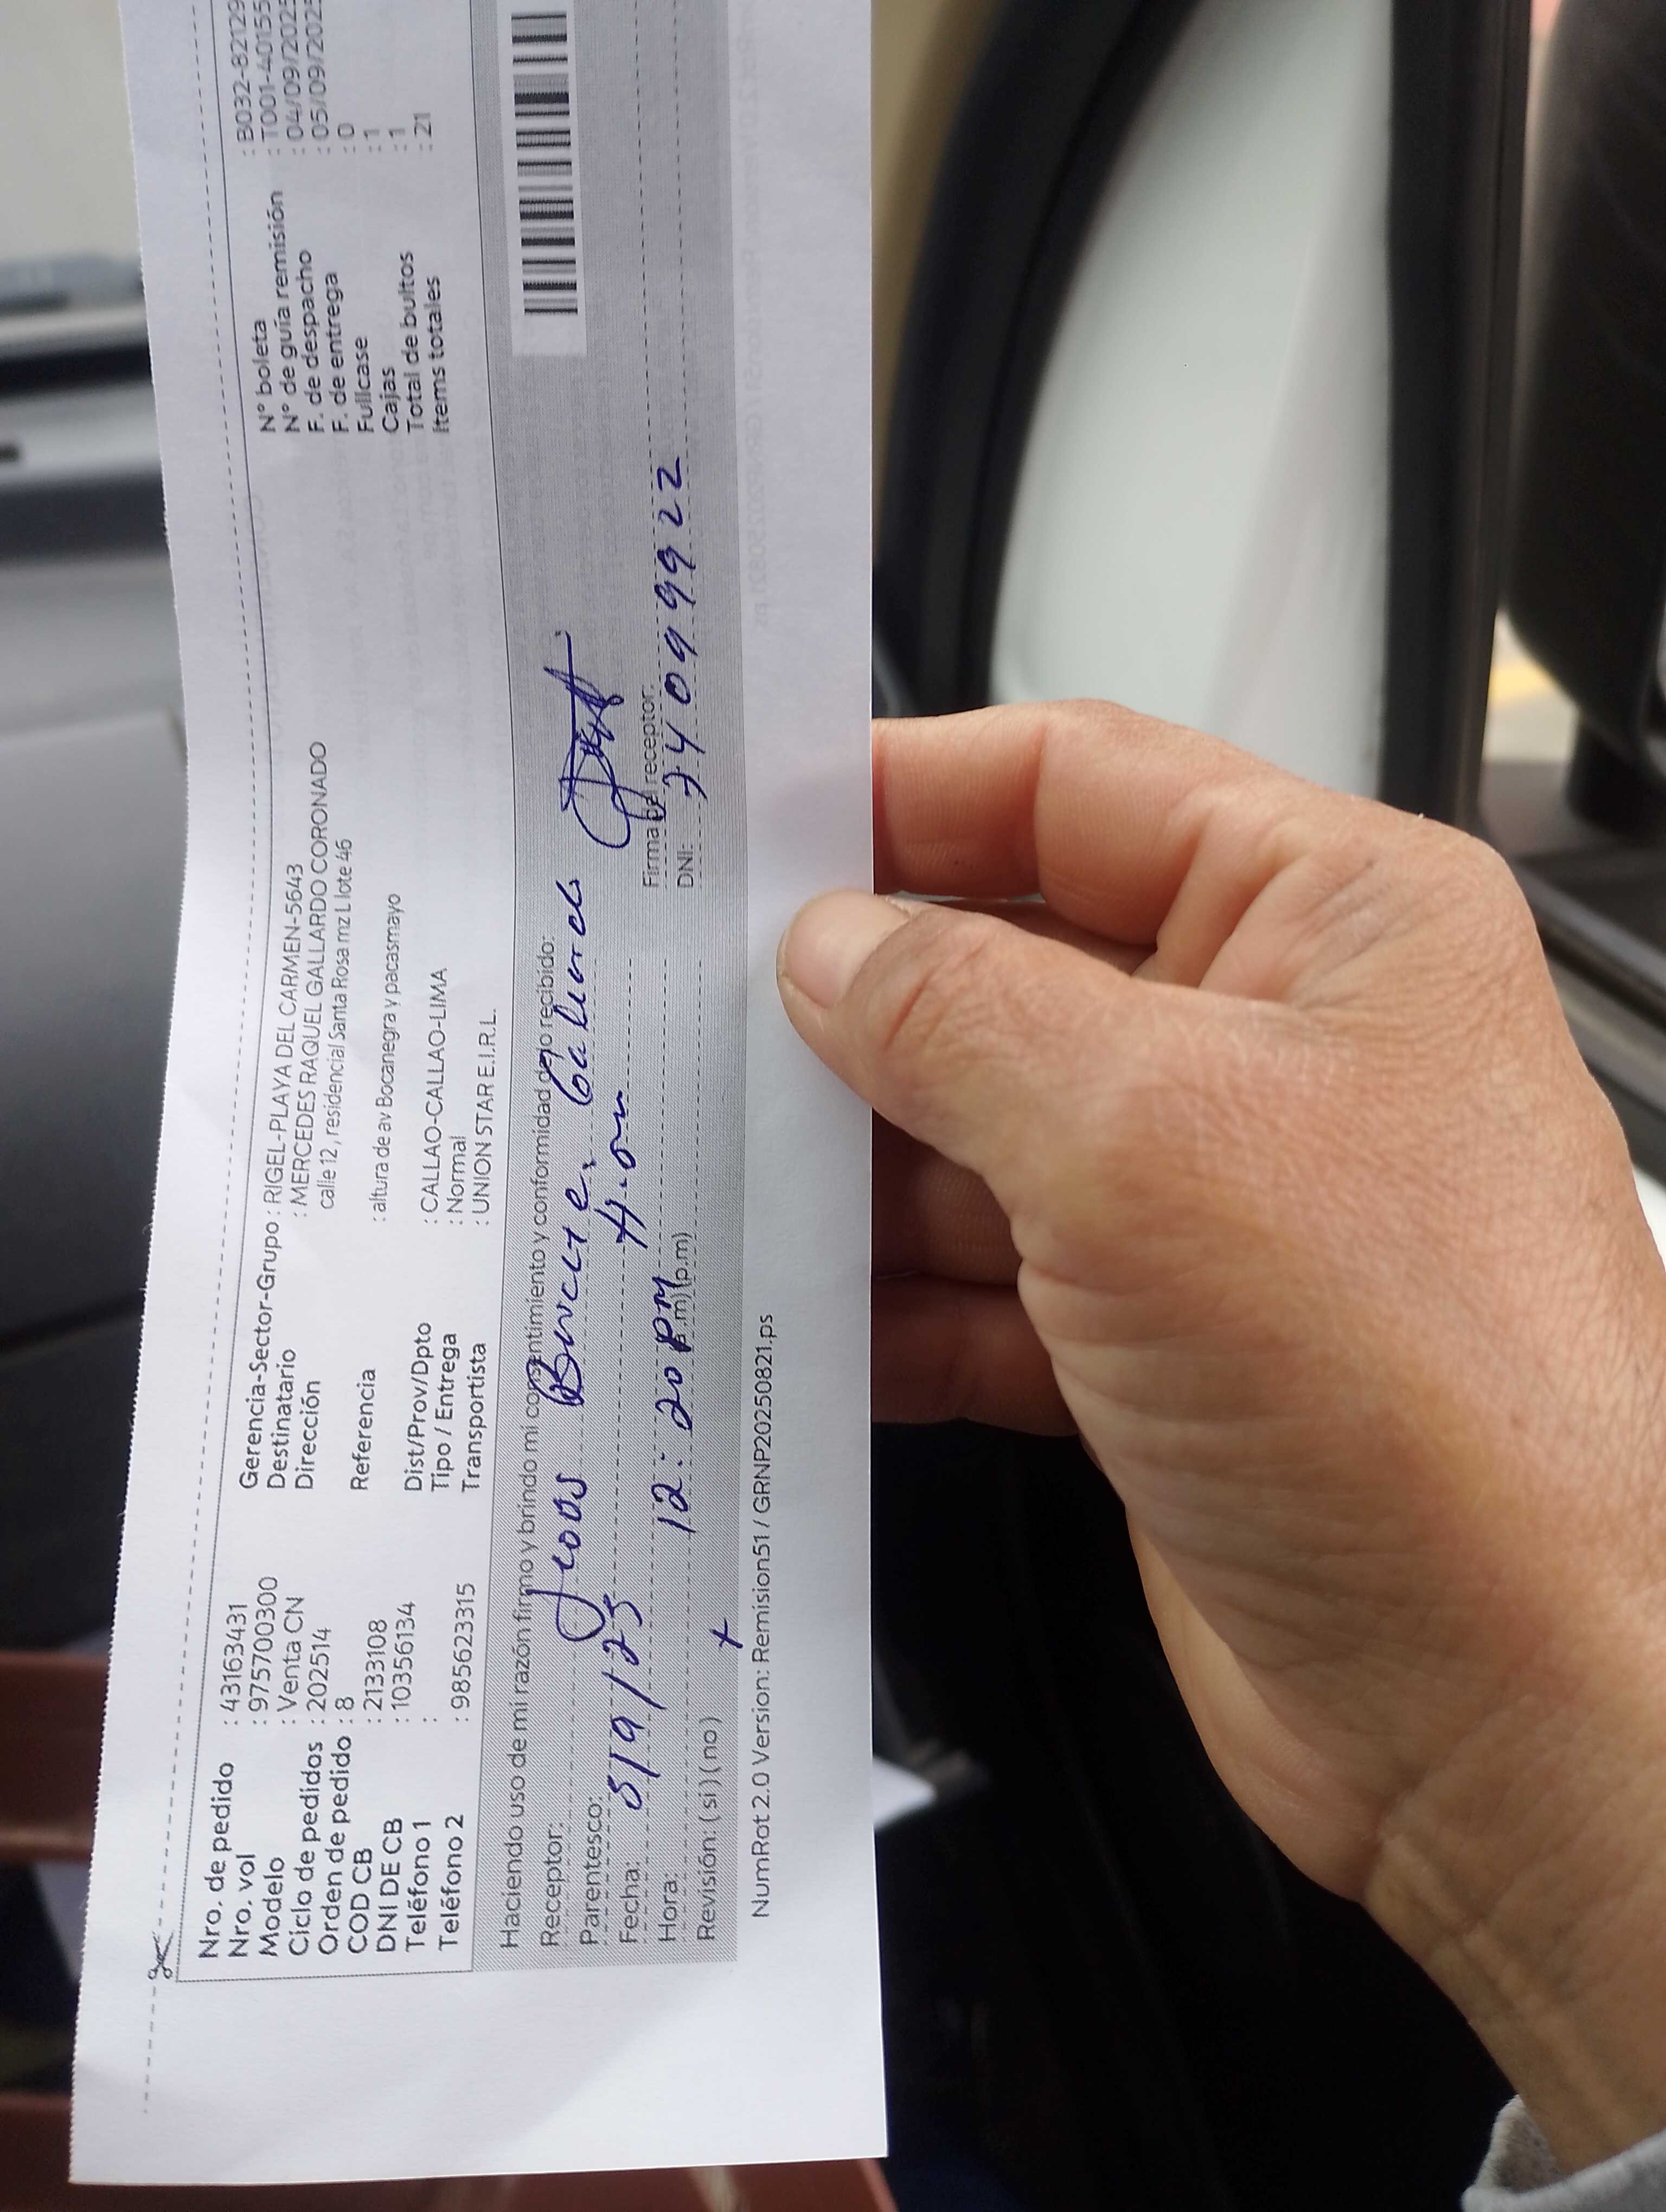 Nro. de pedido : 43163431
Nro. vol : 975700300
Modelo : Venta CN
Ciclo de pedidos : 202514
Orden de pedido : 8
COD CB : 2133108
DNI DE CB : 10356134
Teléfono 1 :
Teléfono 2 : 985623315
Gerencia-Sector-Grupo : RIGEL-PLAYA DEL CARMEN-5643
Destinatario : MERCEDES RAQUEL GALLARDO CORONADO
Dirección calle 12, residencial Santa Rosa mz L lote 46
Referencia : altura de av Bocanegra y pacasmayo
Dist/Prov/Dpto : CALLAO-CALLAO-LIMA
Tipo / Entrega : Normal
Transportista : UNION STAR E.I.R.L.
N° boleta : B032-82129
N° de guía remisión : T001-40155
F. de despacho : 04/09/2025
F. de entrega : 05/09/2025
Fullcase : 0
Cajas : 1
Total de bultos : 1
Items totales : 21
Haciendo uso de mi razón firmo y brindo mi consentimiento y conformidad de lo recibido:
Receptor:
Parentesco:
Fecha: 5/9/25
Hora: 12:20 PM (a.m) (p.m)
Revisión: (si) (no)
Firma del receptor:
DNI: 74099922
NumRot 2.0 Version: Remision51 / GRNP20250821.ps